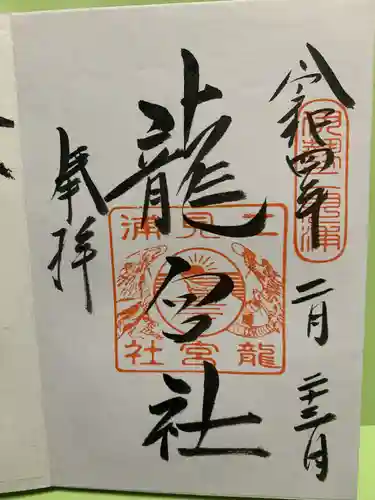 令和四年
二月
二十三日
龍宮社
奉拝
二見浦
龍宮社
伊勢二見浦